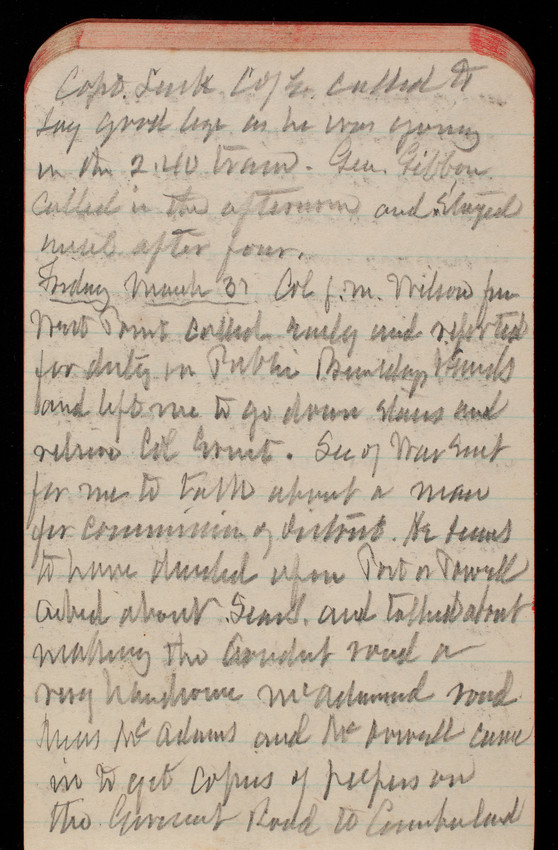 Capt. Lusk Co/E. called to
say good bye as he was going
in the 2.40 train. Gen. Gibbon
called in the afternoon and stayed
until after four.
Friday March 31 Col J. M. Wilson from
West Point called early and reported
for duty in Public Buildings Grounds
and left me to go down stairs and
relieve Col Ernst. Sec of War sent
for me to talk about a man
for commissioner of District. He seems
to have decided upon Post or Powell
asked about Sears. and talked about
making the Conduit road a
very handsome McAdamed road
McAdams and came
in to get copies of papers on
the Government Road to Cumberland